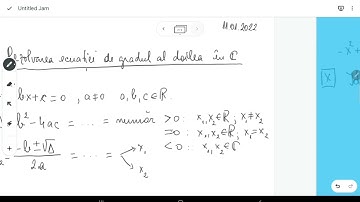 Untitled Jam
11.01.2022
Rezolvarea ecuației de gradul al doilea în ℂ
bx+c=0, a≠0 a,b,c∈ℝ.
b²-4ac = ..... = număr >0: x₁,x₂∈ℝ; x₁≠x₂
=0: x₁,x₂∈ℝ; x₁=x₂
<0: x₁,x₂∈ℂ
-b±√Δ / 2a = .... = x₁
x₂
-x²+
x